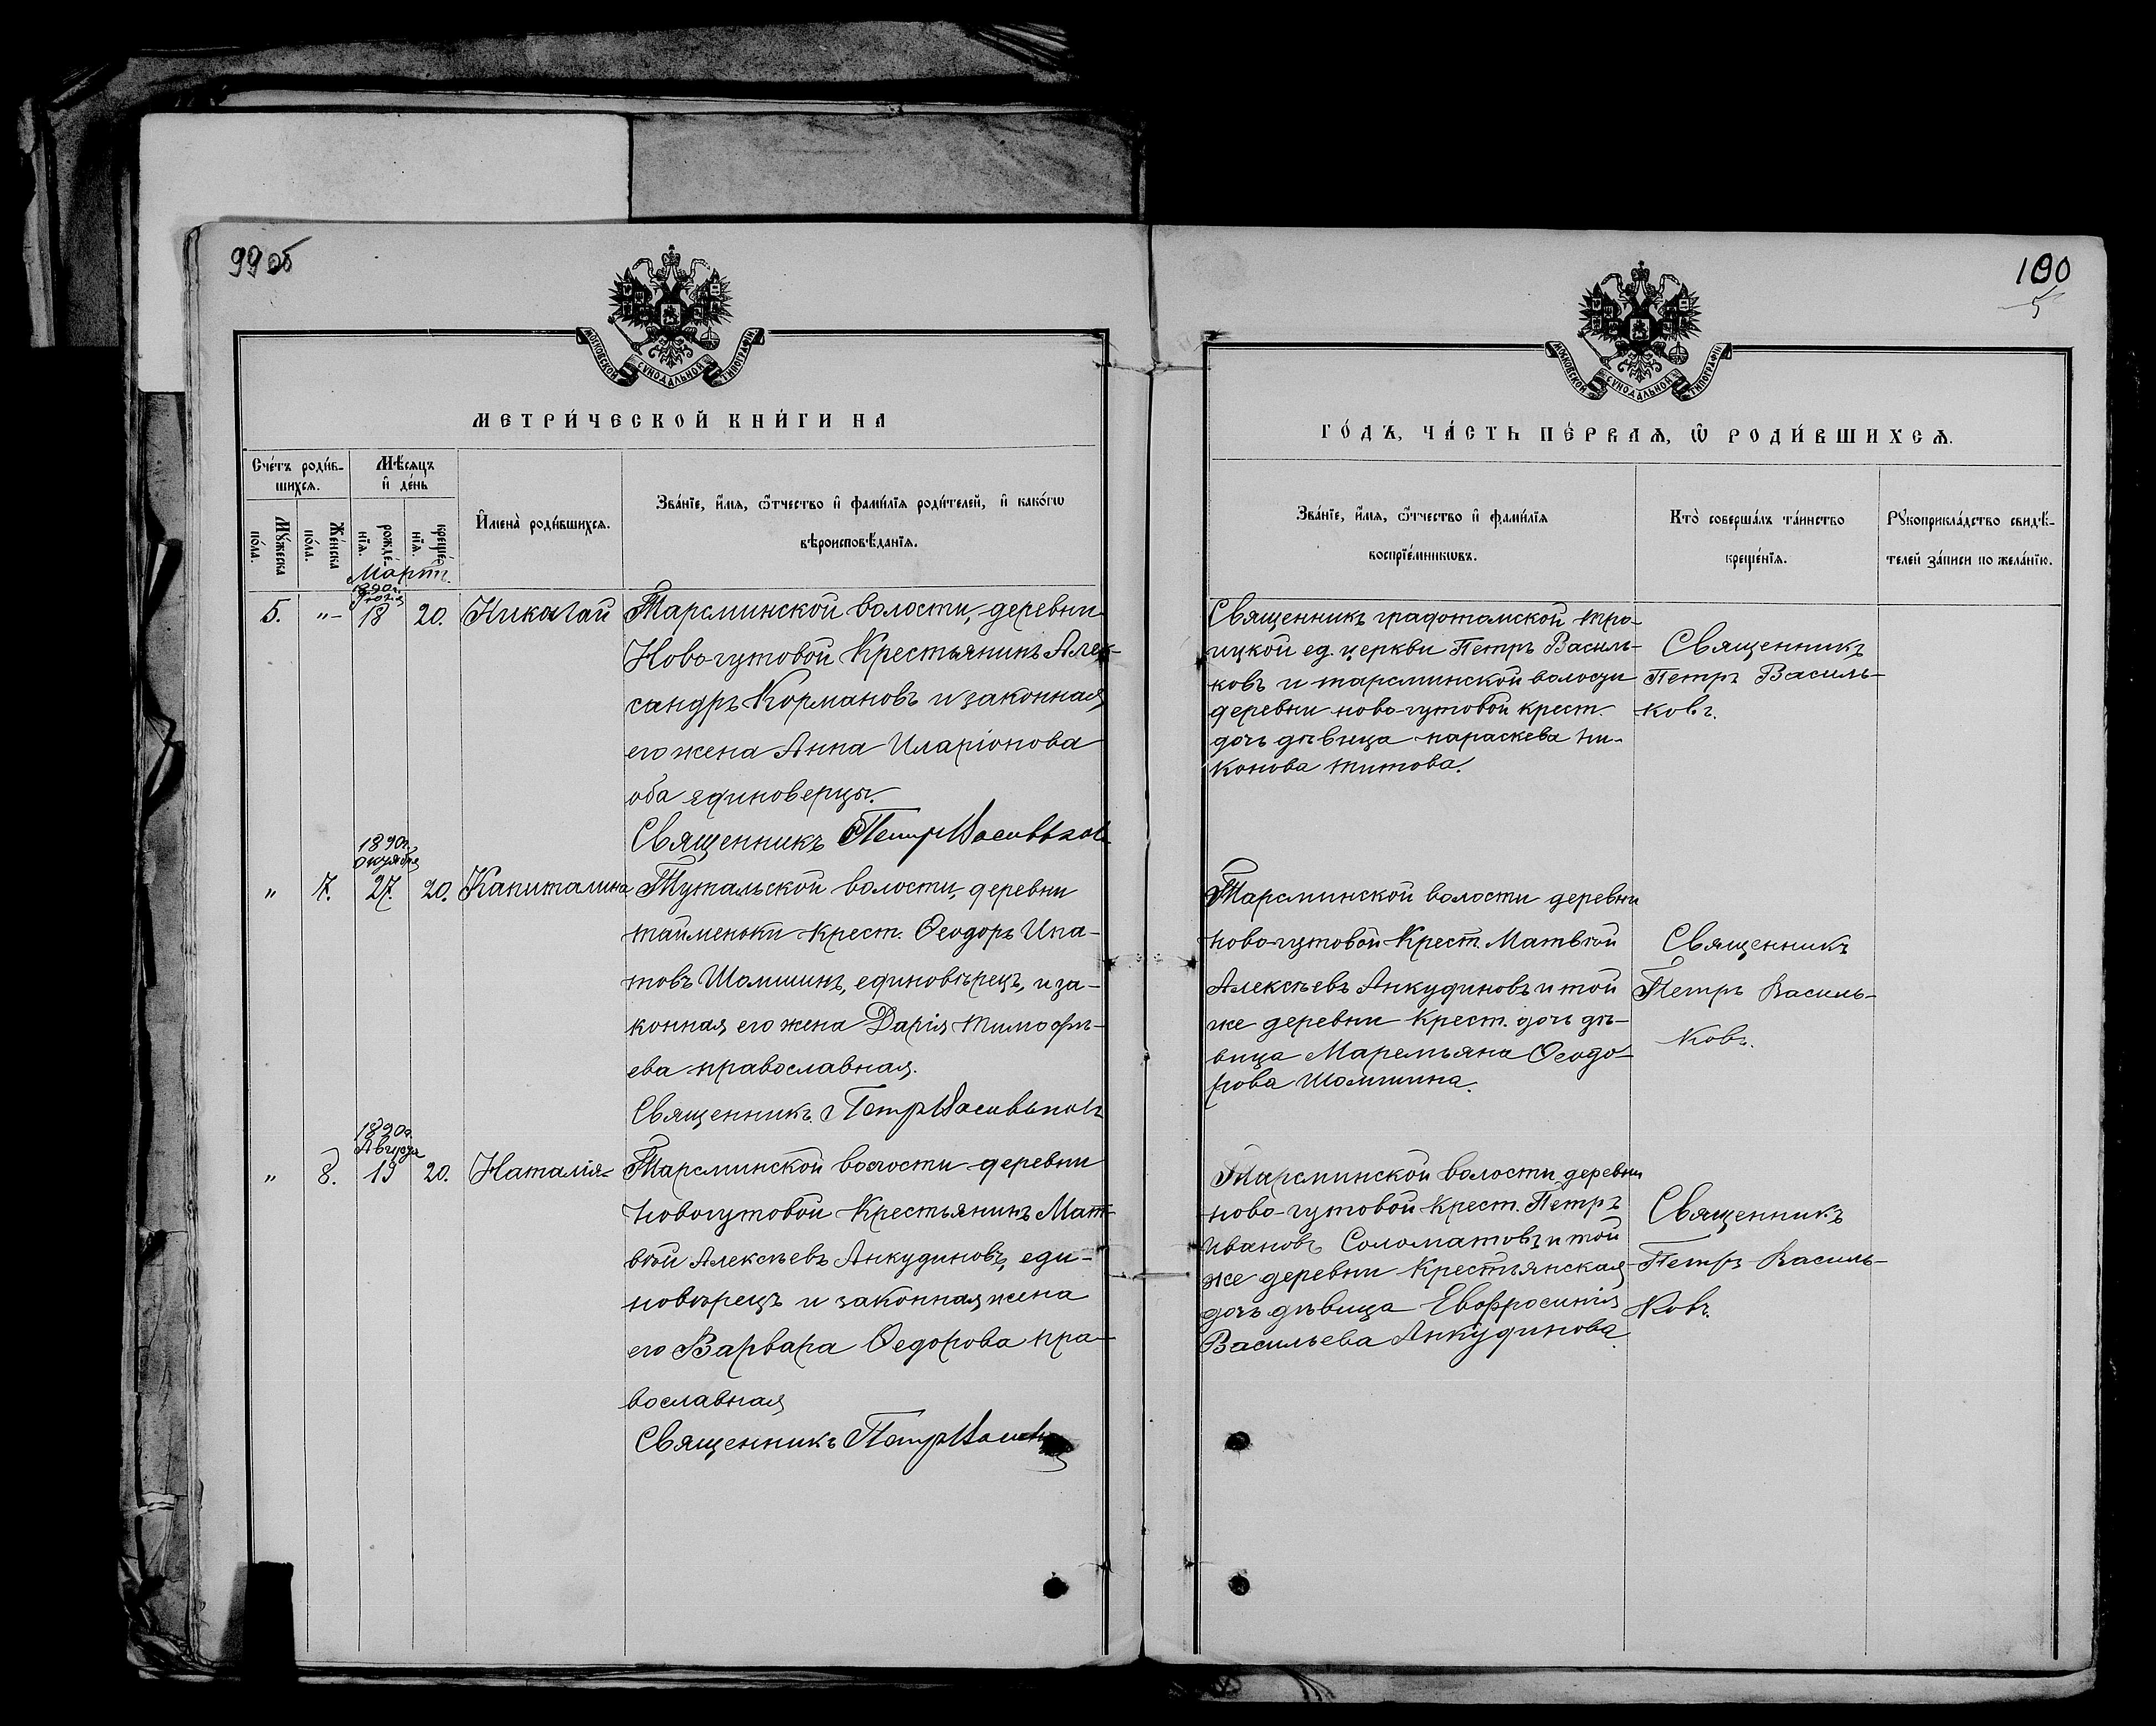 99 об
100
МОСКОВСКОЙ СѴНОДАЛЬНОЙ ТИПОГРАФІИ
МОСКОВСКОЙ СѴНОДАЛЬНОЙ ТИПОГРАФІИ
МЕТРИ́ЧЕСКОЙ КНИ́ГИ НА
Сче́тъ роди́в-
шихсѧ.
Мѣ́сѧцъ
и҆ де́нь
Мꙋ́жеска
по́ла.
Же́нска
по́ла.
рожде́-
нїѧ.
креще́-
нїѧ.
И҆мена̀ роди́вшихсѧ.
Зва́нїе, и҆́мѧ, ѻ҆́тчество и҆ фами́лїѧ роди́телей, и҆ како́гѡ
вѣроисповѣ́данїѧ.
Мартъ.
1890 г.
5. "- 18 20. Николай Тарсминской волости, деревни
Ново-гутовой Крестьянинъ Алек-
сандръ Кормановъ и законная
его жена Анна Иларіонова
оба единоверцы.
Священникъ Петръ Васильков
1890 г.
октября
" 7. 27. 20. Капиталина Тутальской волости, деревни
тайменки крест. Ѳеодоръ Ипа-
товъ Шамшинъ, единовѣрецъ, и за-
конная его жена Дарія тимофѣ-
ева православная.
Священникъ Петръ Васильков
1890 г.
Августа
" 8. 19 20. Наталія Тарсминской волости деревни
новогутовой Крестьянинъ Мат-
вѣй Алексѣевъ Анкудиновъ, еди-
новѣрецъ и законная жена
его Варвара Ѳедорова пра-
вославная
Священникъ Петръ
ГО́ДЪ, ЧА́СТЬ ПЕ́РВАѦ, Ѡ҆ РОДИ́ВШИХСѦ.
Зва́нїе, и҆́мѧ, ѻ҆́тчество и҆ фами́лїѧ
воспрїе́мникѡвъ.
Кто̀ соверша́лъ та́инство
креще́нїѧ.
Рꙋкоприкла́дство свидѣ́-
телей за́писи по жела́нїю.
Священникъ градотомской тро-
ицкой ед. церкви Петръ Василь-
ковъ и тарсминской волости
деревни ново-гутовой крест.
дочь дѣвица параскева ни-
конова титова.
Священникъ
Петръ Василь-
ковъ.
Тарсминской волости деревни
ново-гутовой Крест. Матвѣй
Алексѣевъ Анкудиновъ и той
же деревни крест. дочь дѣ-
вица Маремьяна Ѳеодо-
рова шамшина.
Священникъ
Петръ Василь-
ковъ.
Тарсминской волости деревни
ново-гутовой крест. Петръ
Ивановъ Соломатовъ и той
же деревни Крестьянская
дочь дѣвица Евфросинія
Васильева Анкудинова.
Священникъ
Петръ Василь-
ковъ.